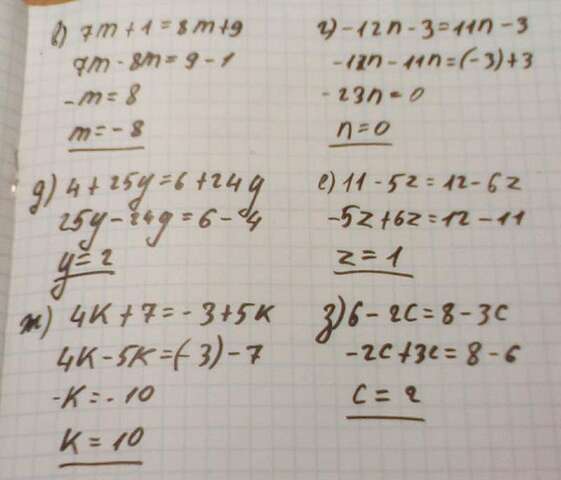 в) 7m + 1 = 8m + 9
7m - 8m = 9 - 1
-m = 8
m = -8
г) -12n - 3 = 11n - 3
-12n - 11n = (-3) + 3
-23n = 0
n = 0
д) 4 + 25y = 6 + 24y
25y - 24y = 6 - 4
y = 2
е) 11 - 5z = 12 - 6z
-5z + 6z = 12 - 11
z = 1
ж) 4K + 7 = -3 + 5K
4K - 5K = (-3) - 7
-K = -10
K = 10
з) 6 - 2c = 8 - 3c
-2c + 3c = 8 - 6
c = 2